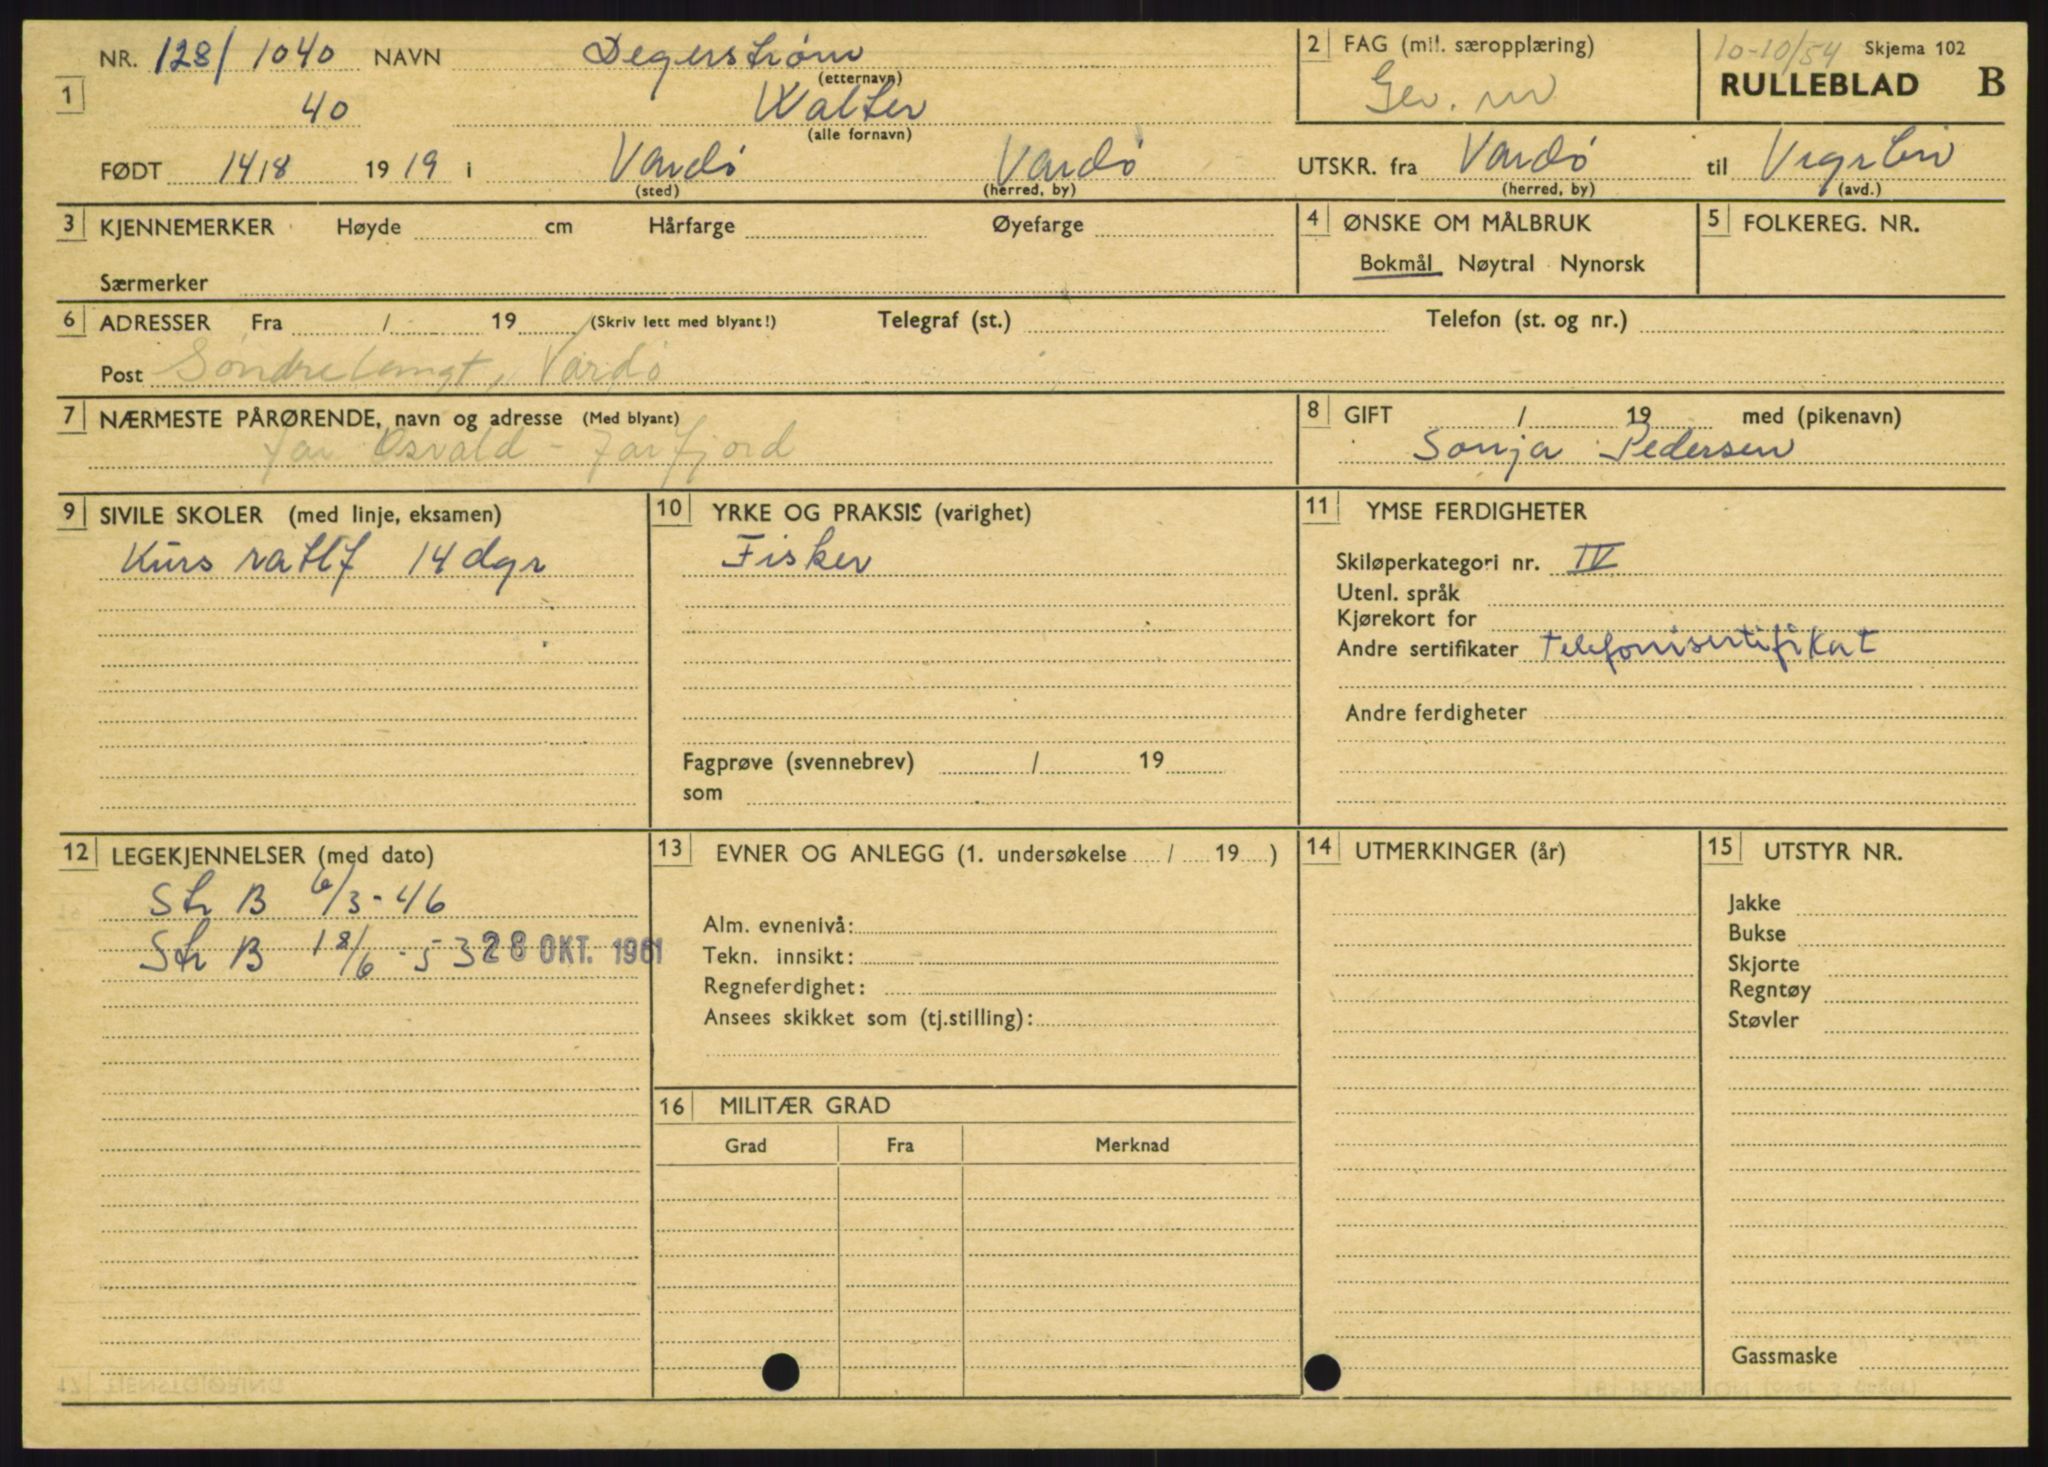 NR. 128/1040 NAVN Degerstrøm 2 FAG (mil. særopplæring) 10-10/54 Skjema 102
(etternavn)
1 40 Walter Gev. RULLEBLAD B
(alle fornavn)
FØDT 14/8 1919 i Vardø Vardø UTSKR. fra Vardø til
(sted) (herred, by) (herred, by) (avd.)
3 KJENNEMERKER Høyde cm Hårfarge Øyefarge 4 ØNSKE OM MÅLBRUK 5 FOLKEREG. NR.
Bokmål Nøytral Nynorsk
Særmerker
6 ADRESSER Fra / 19 (Skriv lett med blyant!) Telegraf (st.) Telefon (st. og nr.)
Post Vardø
7 NÆRMESTE PÅRØRENDE, navn og adresse (Med blyant) 8 GIFT / 19 med (pikenavn)
far Osvald - Jarfjord Sonja Pedersen
9 SIVILE SKOLER (med linje, eksamen) 10 YRKE OG PRAKSIS (varighet) 11 YMSE FERDIGHETER
Kurs ratlf 14 dgr Fisker Skiløperkategori nr. IV
Utenl. språk
Kjørekort for
Andre sertifikater Telefonisertifikat
Andre ferdigheter
Fagprøve (svennebrev) / 19
som
12 LEGEKJENNELSER (med dato) 13 EVNER OG ANLEGG (1. undersøkelse / 19 ) 14 UTMERKINGER (år) 15 UTSTYR NR.
Str B 6/3-46 Jakke
Alm. evnenivå: Bukse
Str B 18/6-53 28 OKT. 1961 Tekn. innsikt: Skjorte
Regneferdighet: Regntøy
Ansees skikket som (tj.stilling): Støvler
16 MILITÆR GRAD
Grad Fra Merknad
Gassmaske